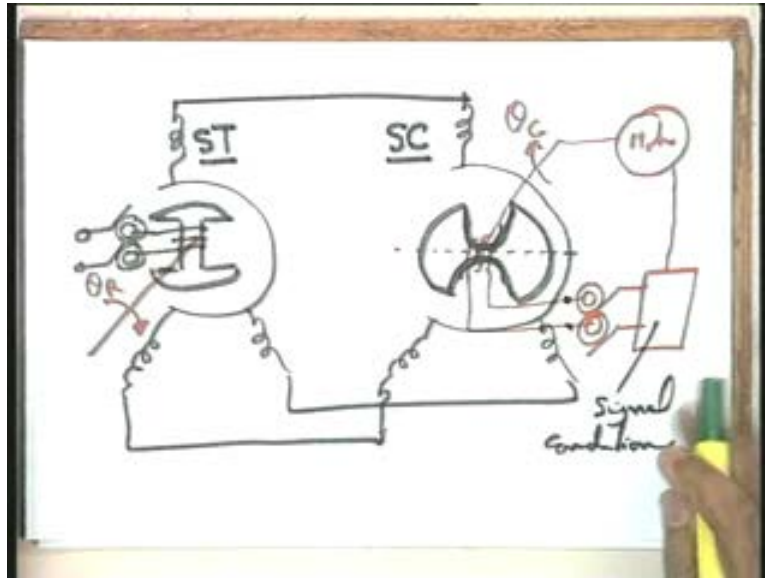 ST
SC
θC
Motor
θR
Signal
Condition